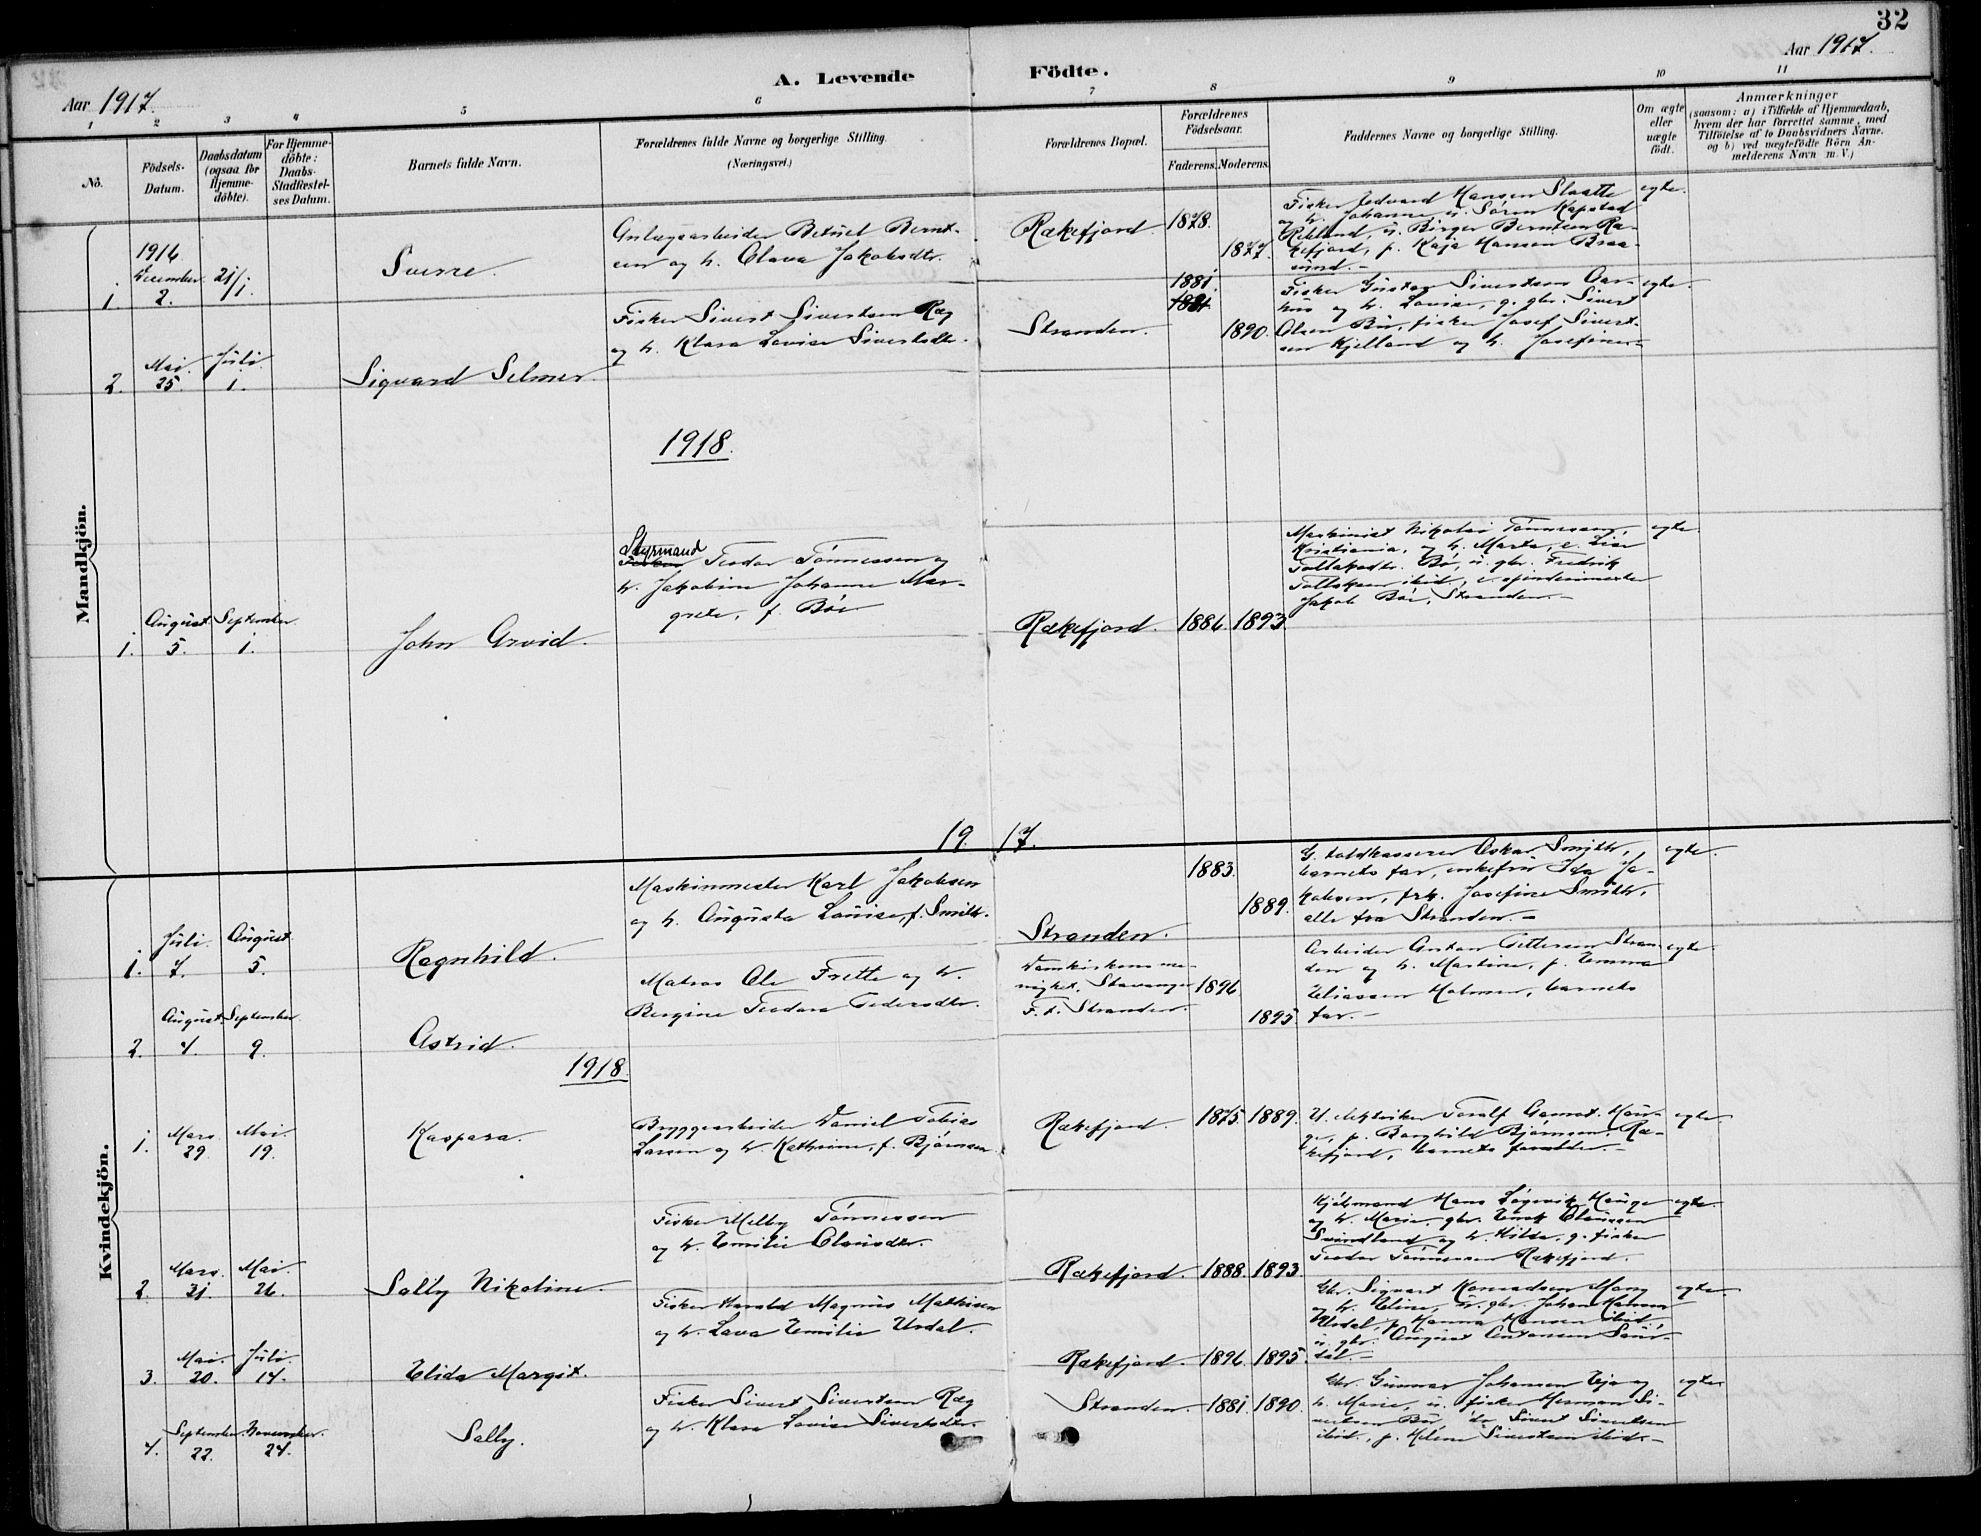 32
A. Levende Födte.
Aar 1917.
Aar 1917.
1 2 3 4 5 6 7 8 9 10 11
No.
Födsels-
Datum.
Daabsdatum
(ogsaa for
Hjemme-
döbte).
For Hjemme-
döbte:
Daabs-
Stadfæstel-
ses Datum.
Barnets fulde Navn.
Forældrenes fulde Navne og borgerlige Stilling.
(Næringsvei.)
Forældrenes Bopæl.
Forældrenes
Födselsaar.
Faderens. Moderens.
Faddernes Navne og borgerlige Stilling.
Om ægte
eller
uægte
födt.
Anmærkninger
(saasom: a) i Tilfælde af Hjemmedaab,
hvem der har forrettet samme, med
Tilföielse af to Daabsvidners Navne.
og b) ved uægtefödte Börn An-
melderens Navn m. V.)
Mandkjön.
1.
1916
December
2.
21/1.
Sverre.
Anlægsarbeider Betuel Bernt-
sen og h. Olava Jakobsdtr.
Rækefjord
1878.
1877.
Fisker Edvard Hansen Slaatte
og h. Johanne, u. Sören Kapstad
Rekland, u. Birger Berntsen Ræ-
kefjord, p. Kaja Hansen
egte.
2.
Mai.
25.
Juli
1.
Sigvard Selmer.
Fisker Sivert Sivertsen Ræg
og h. Klara Lovise Sivertsdtr.
Stranden.
1881.
1890.
Fisker Gustav Sivertsen
og h. Lovise, g. gbr. Sivert
Olsen Bö, fisker Josef Sivert-
sen Kjelland og h. Josefine.-
egte.
1918.
1.
August
5.
September
1.
John Arvid.
Styrmand
Teodor Tönnessen og
h. Jakobine Johanne Mar-
grete, f. Böe
Rækefjord.
1886.
1893.
Maskinist Nikolai Tönnessen,
Kristiania, og h. Marta, e. Lise
Tollaksdtr. Bö, u. gbr. Fredrik
Tollaksen ibid,
Jakob Böe, Stranden.-
egte.
19 17.
Kvindekjön.
1.
Juli.
7.
August
5.
Ragnhild.
Maskinmester Karl Jakobsen
og h. Augusta Lovise, f. Smith.
Stranden.
1883.
1889.
G. toldkasserer Oskar Smith,
barnets far, enkefru Ida Ja-
kobsen, frk. Josefine Smith,
alle fra Stranden.-
egte.
2.
August
4.
September.
9.
Astrid.
Matros Ole Frette og h.
Bergine Teodora Pedersdtr.
Domkirkens me-
nighet, Stavanger
F. t. Stranden.
1896
1895
Arbeider Anton Pettersen Stran-
den og h. Martine, p. Emma
Eliassen Holmen, barnets
far.-
egte.
1918.
1.
Mars.
29.
Mai.
19.
Kaspara.
Bryggearbeider Daniel Tobias
Larsen og h. Kathrine, f. Björnsen.
Rækefjord.
1875.
1889.
U. elektriker Toralf Hau-
ge, p. Borghild Björnsen, Ræ-
kefjord, barnets forældre.-
egte.
2.
Mars.
31.
Mai.
26.
Sally Nikoline.
Fisker Melby Tönnessen
og h. Emilie Clausdtr.
Rækefjord.
1888.
1893.
Hans Lögevik, Hauge
og h. Marie, gbr. Enok Claussen
Svindland og h. Hilda, g. fisker
Teodor Tönnessen Rækefjord.
egte.
3.
Mai.
20.
Juli.
14.
Elida Margit.
Fisker Harald Magnus Mathisen
og h. Lava Emilie Urdal.
Rækefjord.
1896.
1895.
Gbr. Sigvart Konradsen Mong
og h. Eline, u. gbr. Johan Hansen
Urdal, p. Hanna Hansen ibid,
u. gbr. August Antonsen
dal.-
egte.
4.
September.
22.
November.
24.
Sally.
Fisker Sivert Sivertsen Ræg
og h. Klara Lovise Sivertsdtr.
Stranden.
1881.
1890.
Gbr. Gunnar Johansen Eja og
h. Marie, u. fisker Herman Si-
vertsen Bö, do Sivert Sivertsen
ibid., p. Helene Sivertsen ibid.-
egte.